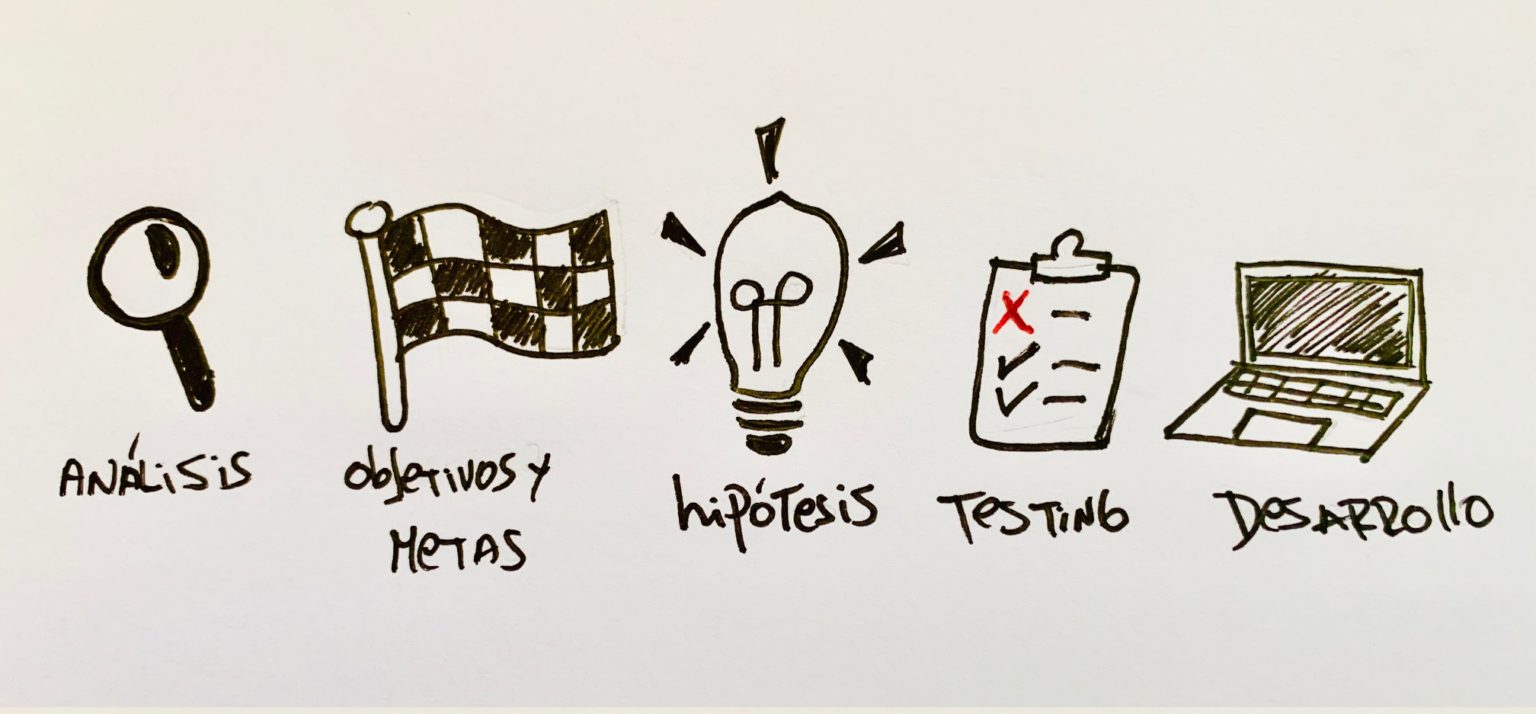 ANÁLISIS
objetivos y
METAS
hipótesis
TESTING
DESARROLLO